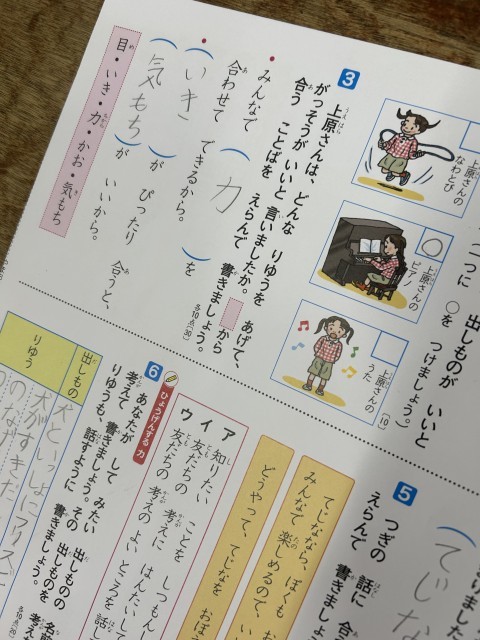 二つに ○を つけましょう。
出しものが いいと
〔10〕
上原さんの
なわとび
○
上原さんの
ピアノ
上原さんの
うた
3
上原さんは、どんな りゆうを あげて、
がっそうが いいと 言いましたか。
合う ことばを えらんで 書きましょう。
から
各10点〔30〕
みんなで（力）を
合わせて できるから。
（いき）が ぴったり 合うと、
（気もち）が いいから。
目・いき・力・かお・気もち
5
つぎの 話に 合
えらんで 書きま
てじな
てじななら、ぼくも お
みんなで 楽しめるので、い
どうやって、てじなを おぼ
ア 知りたい ことを しつもん
イ 友だちの 考えに はんたいし
ウ 友だちの 考えの よい ところを 話し
6
ひょうげんする力
あなたが して みたい 出しものを
考えて 書きましょう。その 出しものの 名
りゆうも、話すように 書きましょう。
各10点〔20
出しもの
犬といっしょにフリスビ
りゆう
犬がすきだ